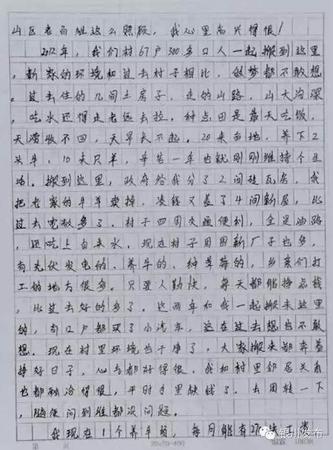 山区老百姓这么照顾，我心里高兴得很！
2012年，我们村67户300多口人一起搬到这里
，新家的环境和过去村子相比，做梦都不敢想
。过去住的几间土房子，走的山路，山大沟深
，吃水还得走老远去拉，种点田是靠天吃饭，
天涝收不回，天旱长不起。20来亩地，养下2
头牛，10来只羊，辛苦一年也就刚刚维持个生
活。搬到这里，政府给我分了2间砖瓦房，我
把老家的牛羊卖掉，凑钱又盖了4间新房，比
过去宽敞多了。村子四周交通便利，全是油路
，还吃上自来水，现在村子周围新厂子也多，
有光伏发电的、养牛的、种草莓的，乡亲们打
工的地方很多。只要人勤快，每天都能挣着钱
，比过去好的多了。这两年和我一起搬来这里
的，有12户都买了小汽车，这在过去想也不敢
想。现在村里环境也干净了，大家搬来都奔着
好日子，心气都好得很，我和村里邻居关系
也都融洽得很，平时手里缺钱了，去周转一下
，随便问到谁都没问题。
我现在1个养牛场，每月能有
20×20=400